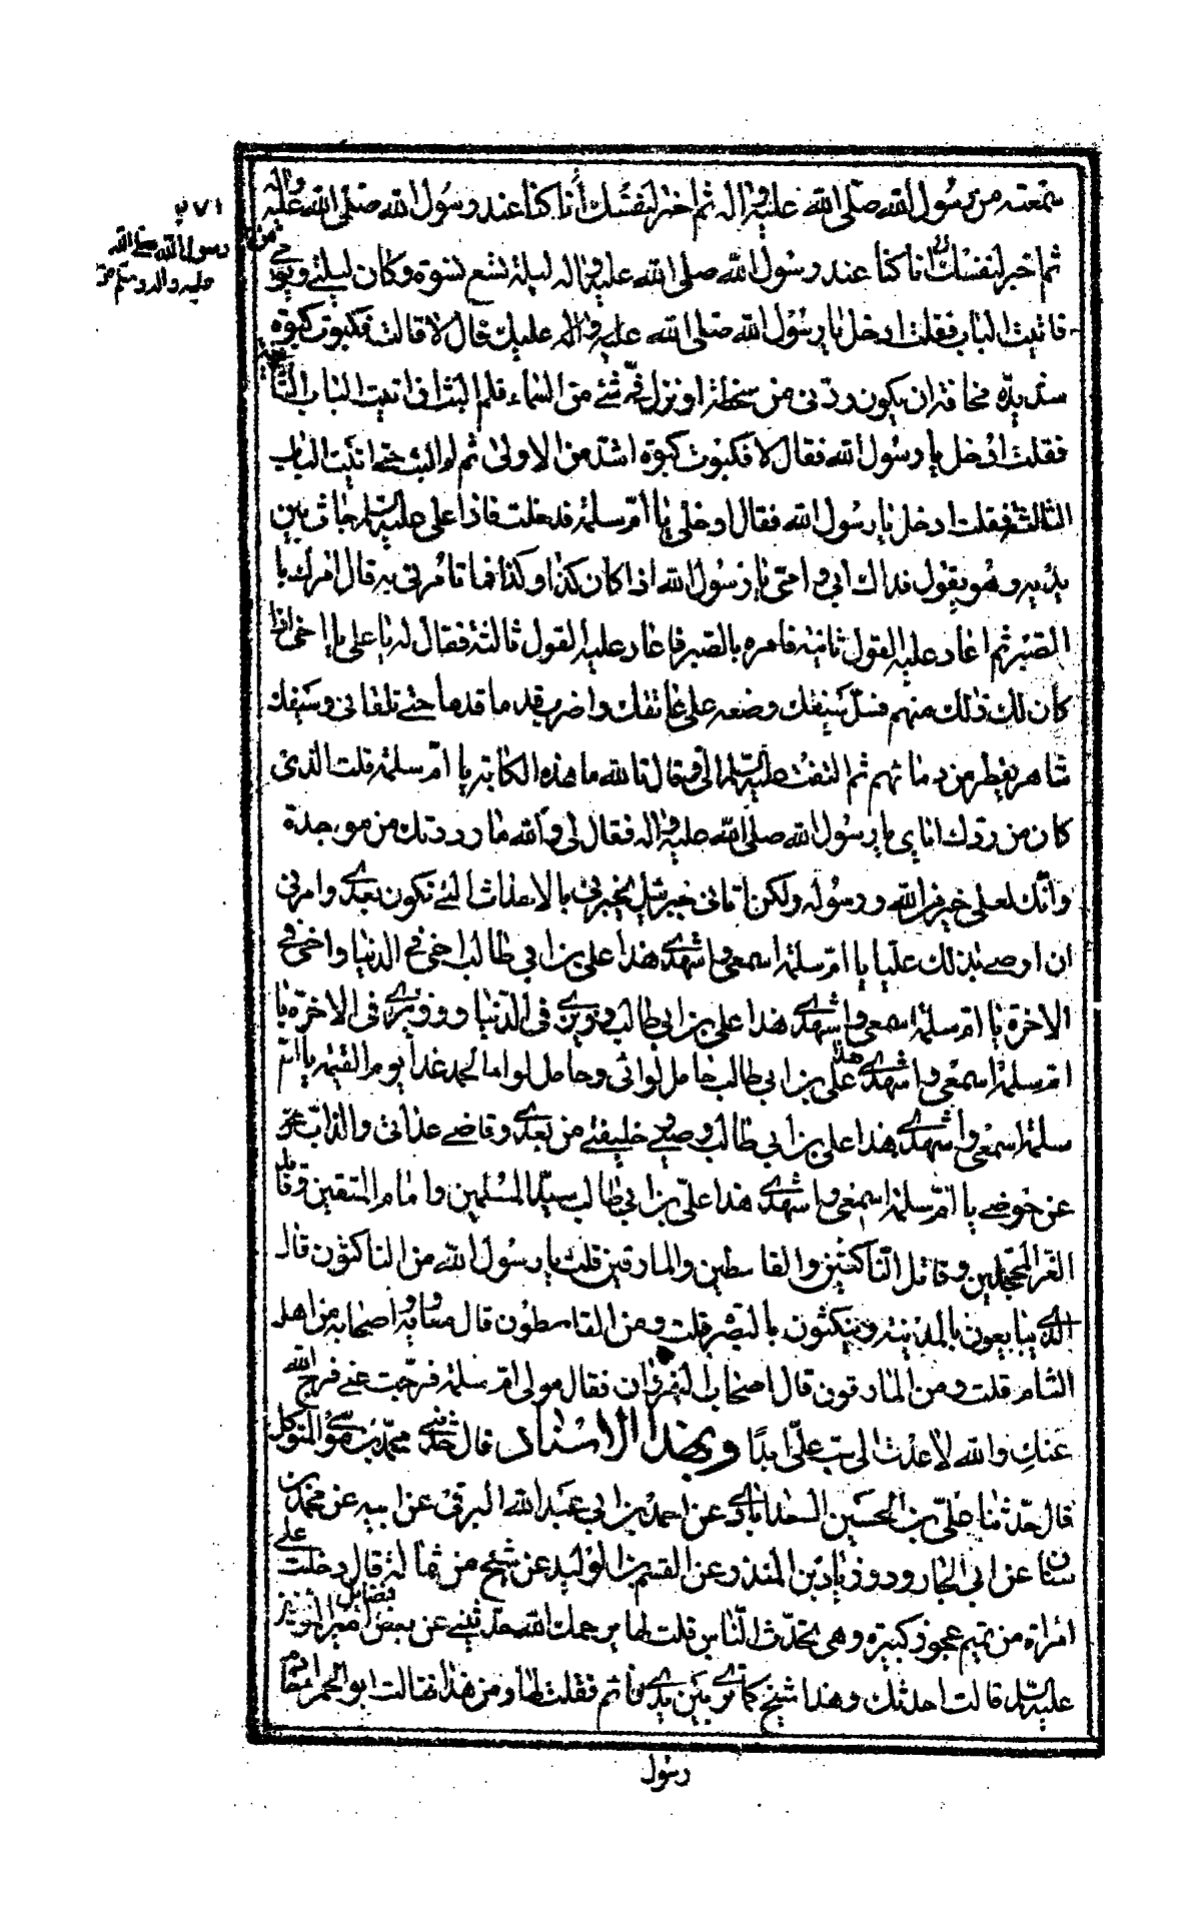 سمعته من رسول الله صلى الله عليه و اله ثم اختر لنفسك أنا كنا عند رسول الله صلى الله عليه واله
ثم اختر لنفسك انا كنا عند رسول الله صلى الله عليه و اله ليلة تسع نسوة وكان ليلتي ويومي من
٧١ب
رسول الله صلى الله
عليه واله وسلم
فاتيت الباب فقلت ادخل يا رسول الله صلى الله عليه و اله عليك قال لا قالت فكبوت كبوة
شديدة مخافة ان يكون ردني من سخطة او نزل في شئ من السماء فلم البث ان اتيت الباب الثانية
فقلت ادخل يا رسول الله فقال لا فكبوت كبوة اشد من الاولى ثم لم البث حتى اتيت الباب
الثالثة فقلت ادخل يا رسول الله فقال ادخلي يا ام سلمة فدخلت فاذا علي عليه السلم جاث بين
يديه وهو يقول فداك ابي وامي يا رسول الله اذا كان كذا وكذا فما تامرني به قال امرك با
الصبر ثم اعاد عليه القول ثانية فامره بالصبر فاعاد عليه القول ثالثة فقال له يا علي يا اخي اذا
كان لك ذلك منهم فسل سيفك وضعه على عاتقك واضرب قدما قدما حتى تلقاني وسيفك
شاهر يقطر من دمائهم ثم التفت عليه السلم الي فقال تالله ما هذه الكابة يا ام سلمة قلت الذي
كان من ردك اياي يا رسول الله صلى الله عليه و اله فقال لي والله ما رددتك من موجدة
وانك لعلى خير من الله ورسوله ولكن اتاني جبرئيل يخبرني بالاحداث التي تكون بعدي وامرني
ان اوصي بذلك عليا يا ام سلمة اسمعي واشهدي هذا علي بن ابي طالب اخي في الدنيا واخي في
الاخرة يا ام سلمة اسمعي واشهدي هذا علي بن ابي طالب وزيري في الدنيا ووزيري في الاخرة يا
ام سلمة اسمعي واشهدي هذا علي بن ابي طالب حامل لوائي وحامل لواء الحمد غدا يوم القيمة يا ام
سلمة اسمعي واشهدي هذا علي بن ابي طالب وصيي وخليفتي من بعدي وقاضي عداتي والذاب
عن حوضي يا ام سلمة اسمعي واشهدي هذا علي بن ابي طالب سيد المسلمين وامام المتقين وقائد
الغر المحجلين وقاتل الناكثين والقاسطين والمارقين قلت يا رسول الله من الناكثون قال
الذي يبايعون بالمدينة وينكثون بالبصرة قلت ومن القاسطون قال معاوية واصحابه من اهل
الشام قلت ومن المارقون قال اصحاب النهروان فقال مولى ام سلمة فرجت عني فرج الله
عنك والله لا عدت الى سب علي ابدا وبهذا الاسناد قال حدثني محمد بن موسى المتوكل
قال حدثنا علي بن الحسين السعدابادي عن احمد بن ابي عبد الله البرقي عن ابيه عن محمد بن
سنان عن ابي الجارود زياد بن المنذر عن القسم بن الوليد عن شيخ من ثمالة قال دخلت على
امراة من تميم عجوز كبيرة وهي تحدث الناس قلت لها يرحمك الله حدثيني عن بعض فضايل امير المؤمنين
عليه السلم قالت احدثك وهذا شيخ كما ترى بين يدي نائم فقلت لها ومن هذا فقالت ابو الحمراء خادم
رسول